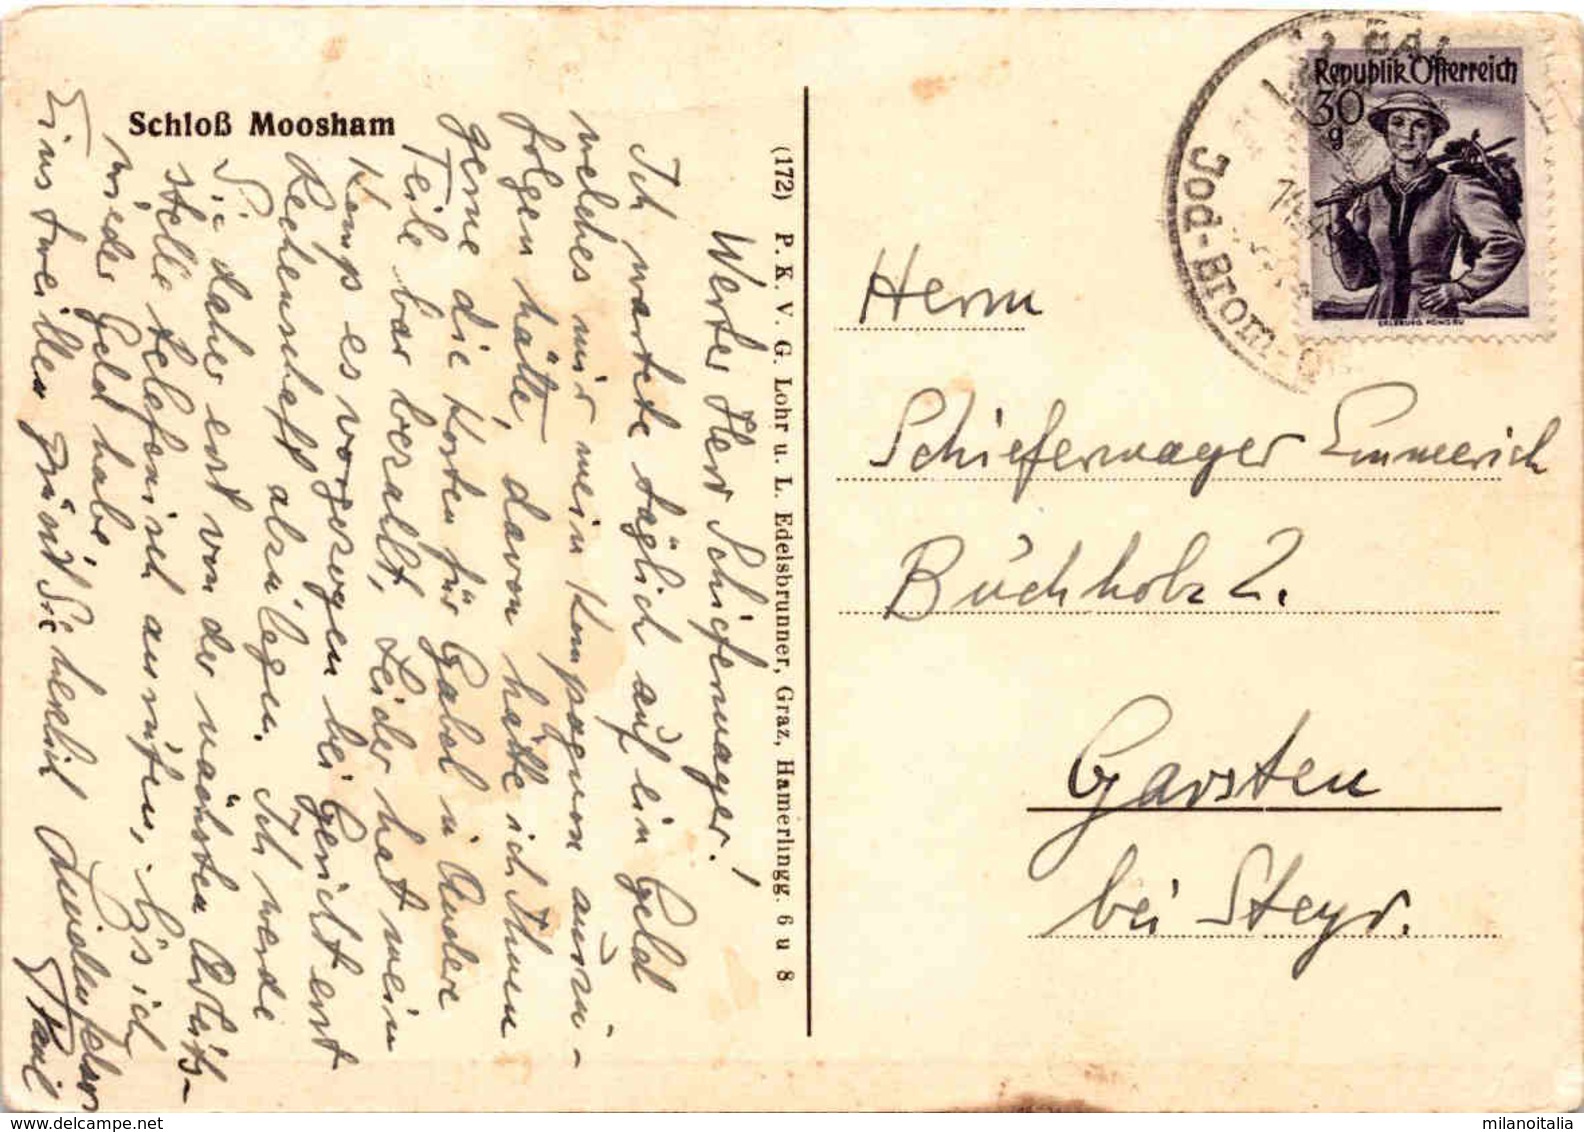 Schloß Moosham
Werter Herr Schiefermayer!
Ich wartete täglich auf ein Geld
welches mir mein Kompagnon aushin-
folgen hätte, davon hätte ich Ihnen
gerne die Kosten für Gabel u andere
Teile bar bezahlt, Leider hat mein
Komp es vorgezogen bei Gericht erst
Rechenschaft abzulegen. Ich werde
Sie daher erst von der nächsten Arbeits-
stelle telefonisch anrufen, bis ich
wieder Geld habe.
Einstweillen grüsst Sie herzlich
Paul
(172) P. K. V. G. Lohr u. L. Edelsbrunner, Graz, Hamerlingg. 6 u 8
Republik Österreich
30
g
SALZBURG PONGAU
Jod-Brom-
Herrn
Schiefermayer Emmerich
Buchholz 2.
Garsten
bei Steyr.
www.delcampe.net
milanoitalia